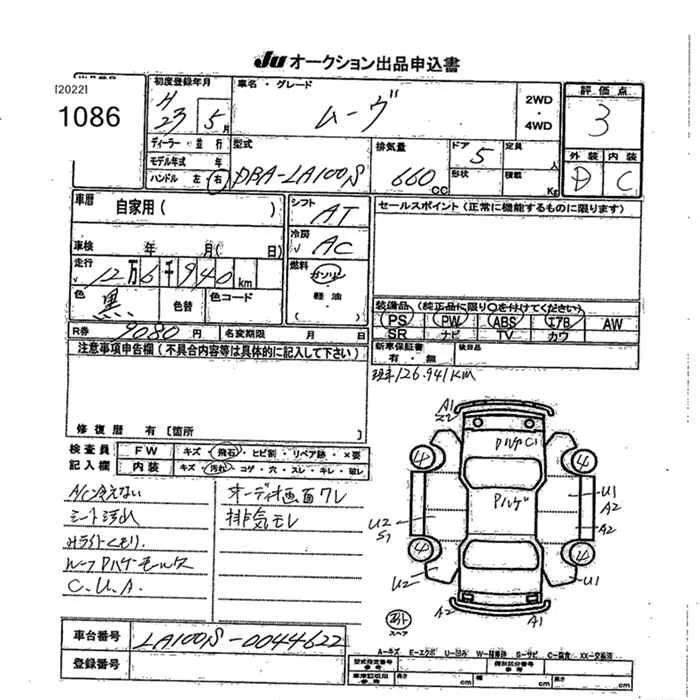 Ju オークション出品申込書
[2022]
1086
初度登録年月
H
23 5月
車名・グレード
ムーヴ
2WD
・
4WD
評価点
3
外装 内装
D C
ディーラー・並行
モデル年式 年
ハンドル 左 右
型式
DBA-LA100S
排気量
660 CC
ドア 5
形状
定員 人
積載 Kg
車歴 自家用( )
車検 年 月( 日)
走行
12万6千940km
色 黒 色替 色コード
シフト AT
冷房 AC
燃料
ガソリン
・
軽油
セールスポイント(正常に機能するものに限ります)
装備品(純正品に限り○を付けてください)
PS PW ABS エアB AW
SR ナビ TV カワ
新車保証書
有・無
後日品
R券 9080円 名変期限 月 日
注意事項申告欄(不具合内容等は具体的に記入して下さい)
修復歴 有[箇所
現車126.941KM
検査員
記入欄
FW キズ・飛石・ヒビ割・リペア跡・×要
内装 キズ・汚れ・コゲ・穴・スレ・キレ・破レ
A/C冷えない
シート汚れ
C.U.A.
オーディオ画面ワレ
排気モレ
A1
4 4
U1
A2
A2
U2
S1
4 4
U2 U1
A2 A1
スペア
車台番号 LA100S-0044622
登録番号
A-キズ E-エクボ U-凹み W-補修跡 S-サビ C-腐食 XX-交換済
型式指定番号
参考
類別区分番号
参考
車庫証明用
参考
長さ cm 幅 cm 高さ cm